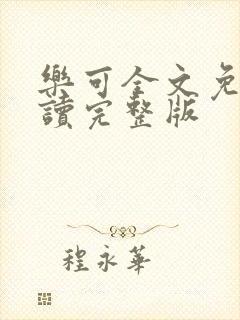 樂可全文免
讀完整版
程永華